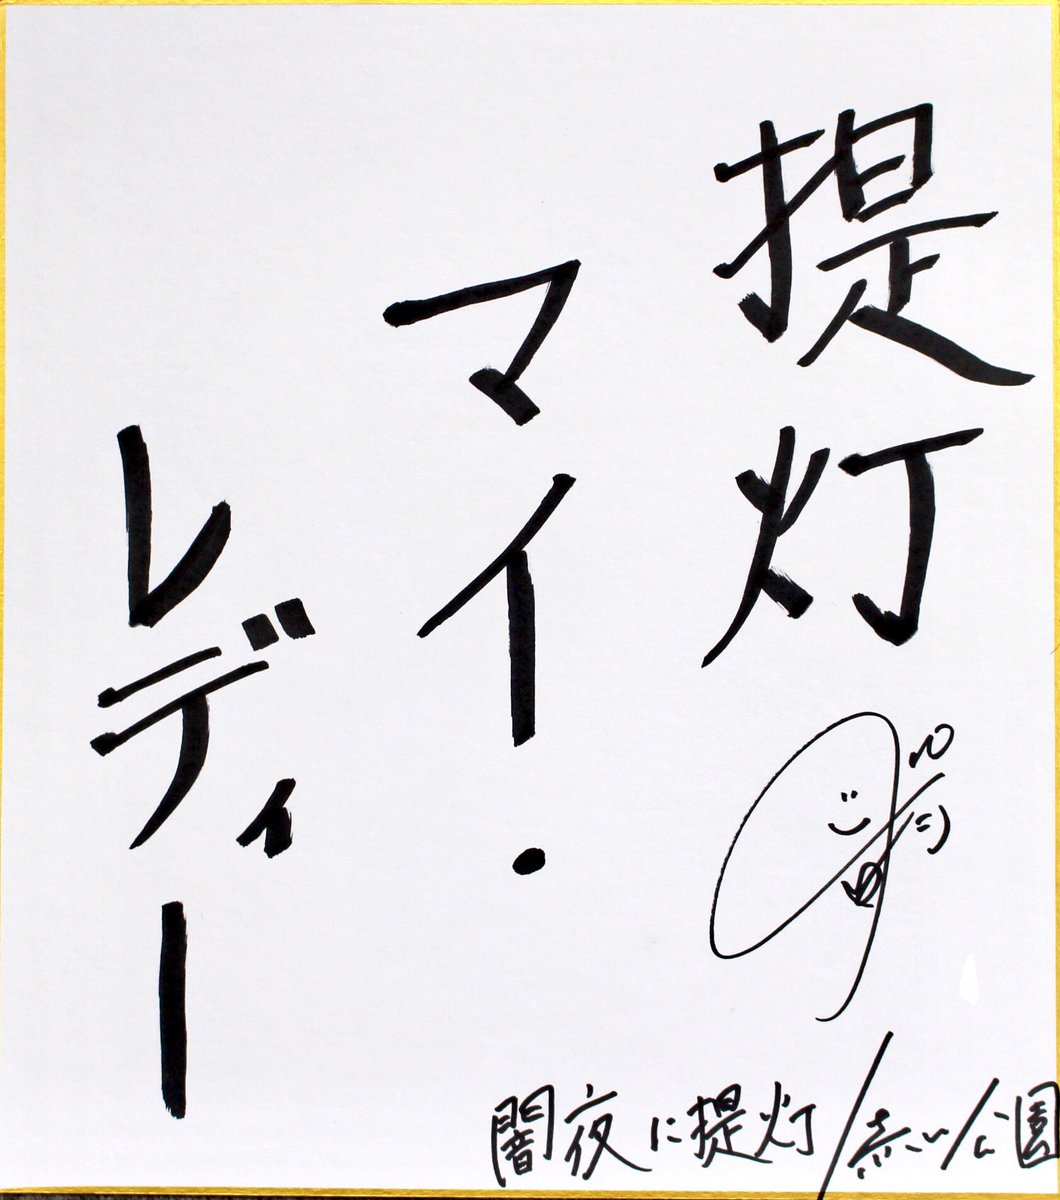 提灯
マイ・
レディー
闇夜に提灯/赤い公園